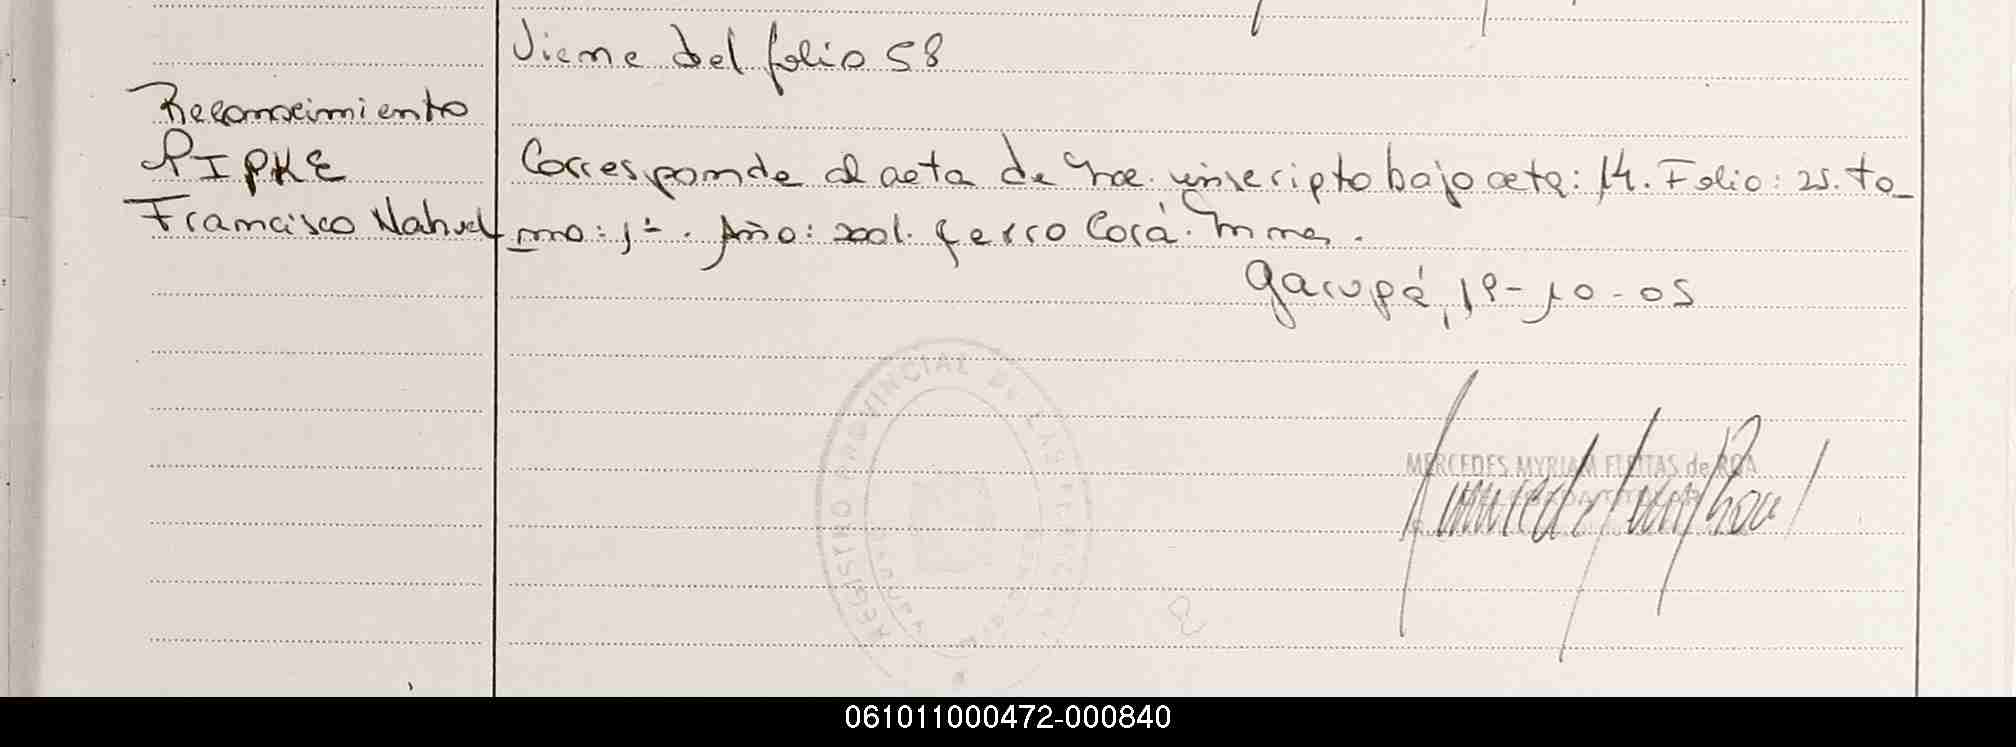 Viene del folio 58
Reconocimiento
PIPKE
Francisco Nahuel
Corresponde al acta de Nac. inscripto bajo acta: 14. Folio: 25. to_
mo: 1º. Año: 2001. Cerro Corá. Mnes.
Garupá, 19-10-05
REGISTRO PROVINCIAL DE LAS PERSONAS
MERCEDES MYRIAM FLEITAS de ROA
061011000472-000840